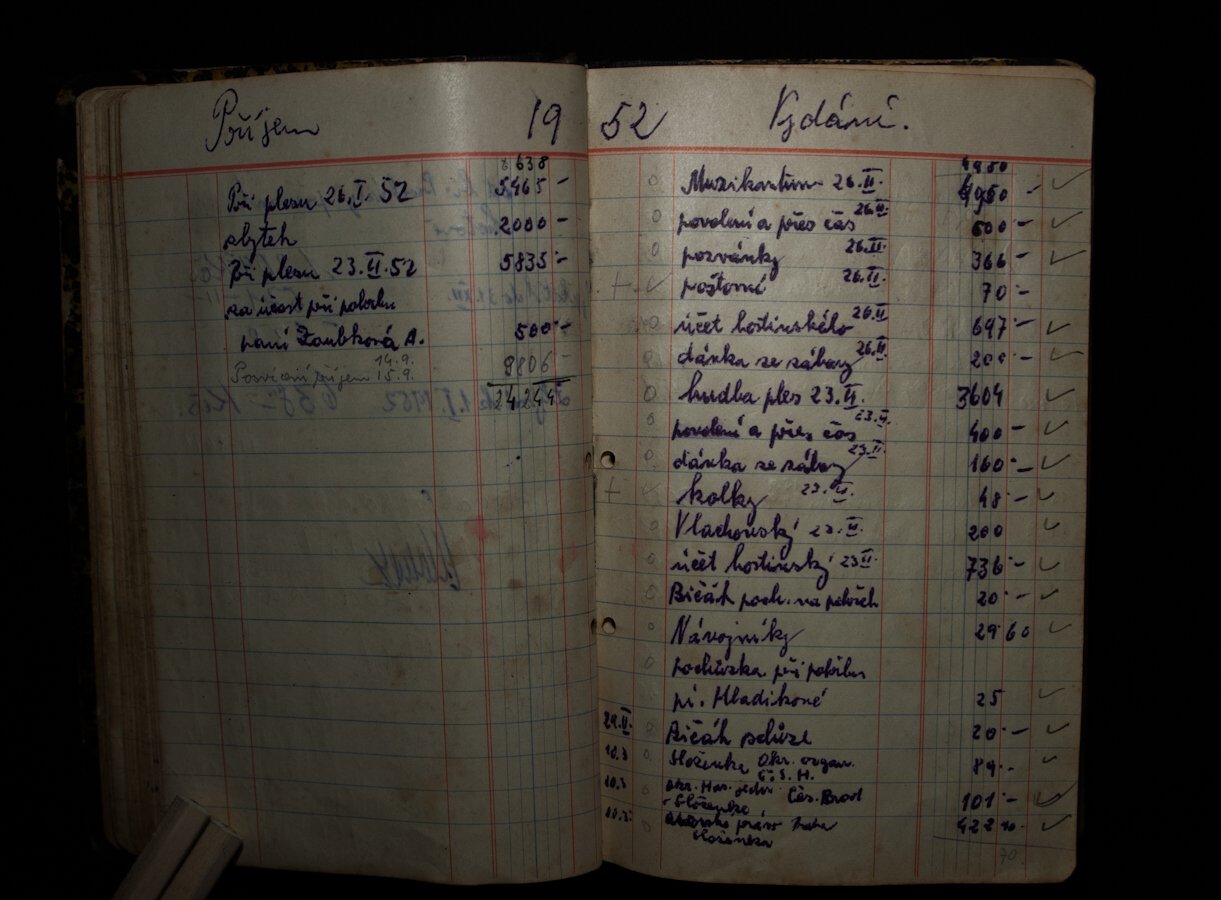 Příjem 19
638
Při plesu 26.I. 52 5465 –
zbytek 2000 –
Při plesu 23.II.52 5835 –
za účast při pohřbu
paní Zoubková A. 500 –
14.9.
Posvícení příjem 15.9. 8806 –
24 244
52 Vydání.
4950
Muzikantům 26.II. –
povolení a přes čas 26.II. 600 –
pozvánky 26.II. 366 –
poštovné 26.II. 70 –
účet hostinského 26.II 697 –
dávka ze zábavy 26.II 200 –
hudba ples 23.II. 3604
povolení a přes čas 23.II. 400 –
dávka ze zábavy 23.II. 160 –
kolky 23.II. 48 –
Vlachovský 23.II. 200
účet hostinský 23II. 736 –
Bičák poch. na pohřeb 20 –
Návojníky 29 60
pochůzka při pohřbu
pí. Hladíkové 25
29.II. Bičák schůze 20 –
10.3 Složenka Okr. organ. 89 –
Č.S.H.
10.3 Okr. Has. jedn. Čes. Brod
Složenka 101 –
10.3 právo Praha 422 10
složenka
70